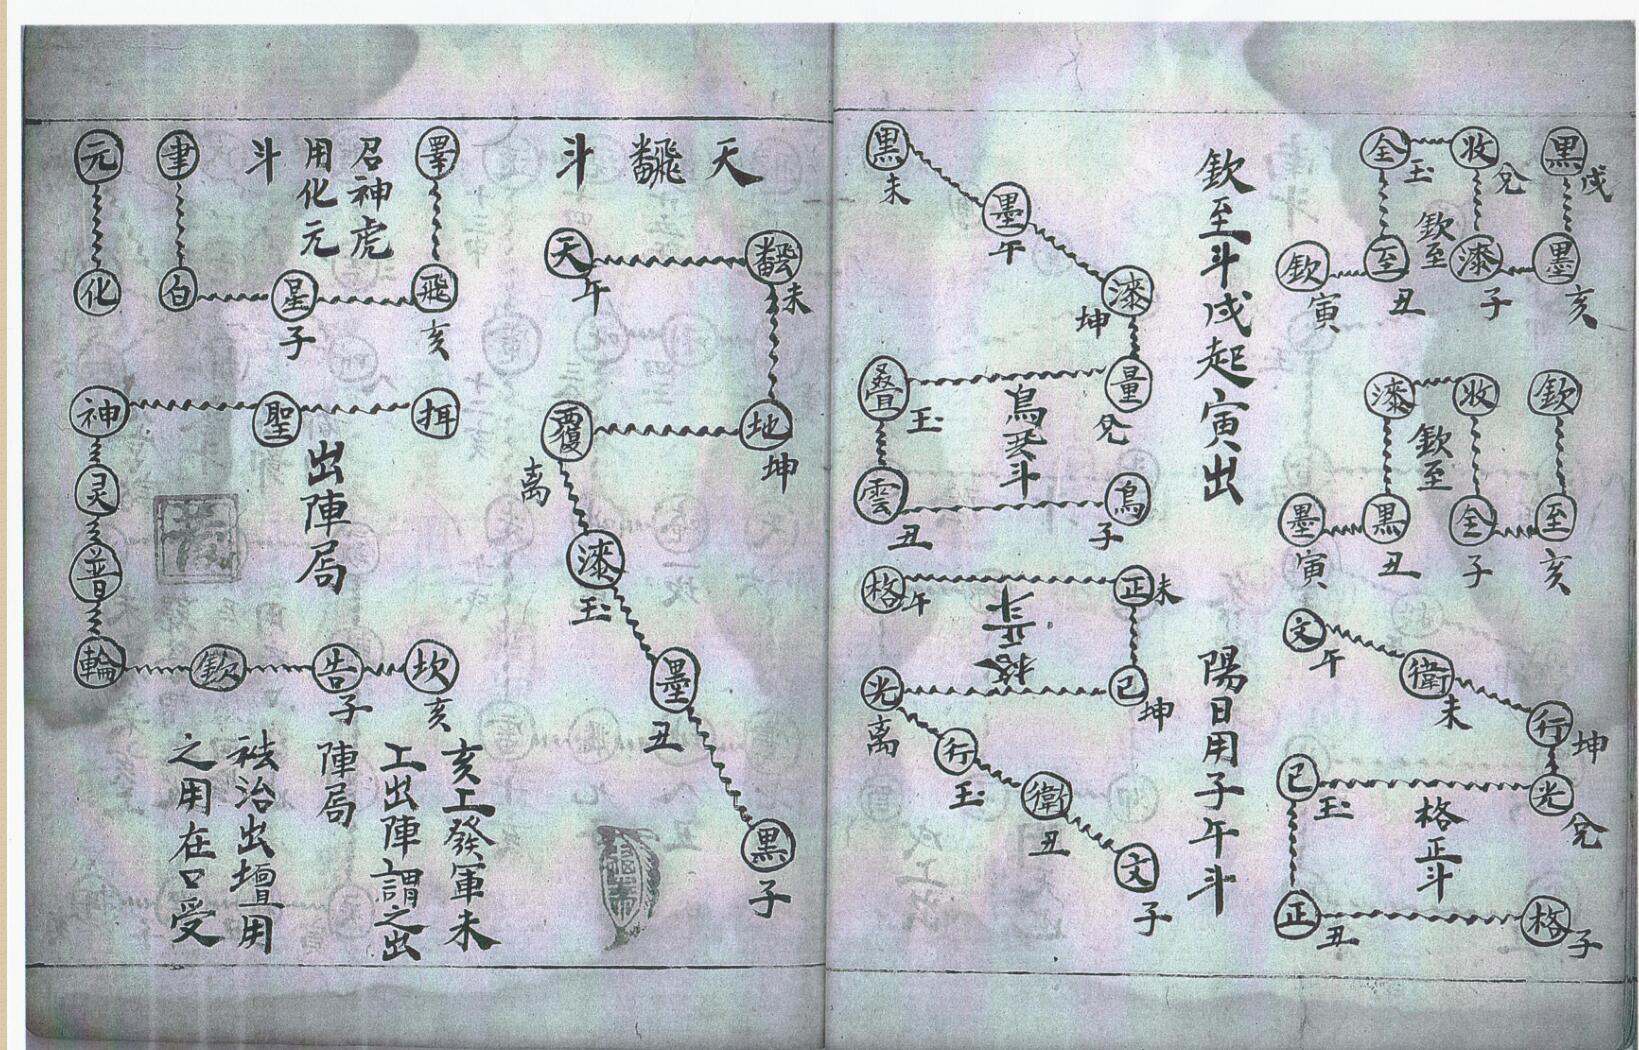 黑戌 收兌 全玉
墨亥 漆子 至丑 欽寅
欽至
欽 收 漆
至亥 全子 黑丑 墨寅
欽至
文午 衛未 行坤
光兌 已玉
正丑 格子
格正斗
欽至斗戌起寅出
陽日用子午斗
黑未
墨午
漆坤
量兌 疊玉
雲丑 鳥子
斗
正未 格午
格正斗
已坤 光离
行玉
衛丑
文子
天 飜 斗
未 天午
地坤 覆离
漆玉
墨丑
黑子
召神虎
用化元
斗
飛亥 星子 白
元 化
聖 神
灵
普
輪 欽 告子 坎亥
出陣局
亥工發軍未
工出陣謂之出
陣局
治出壇用
之用在口受